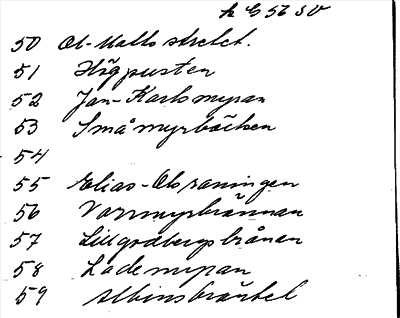 50 Ol-Malls stretet.
51 Högpusten
52 Jan-Karlsmyran
53 Småmyrbäcken
54
55 Elias-Ols raningen
56 Vorrmyrbrännan
57 Lillgrodbergsbrånan
58 Lademyran
59 Albinsbräntet